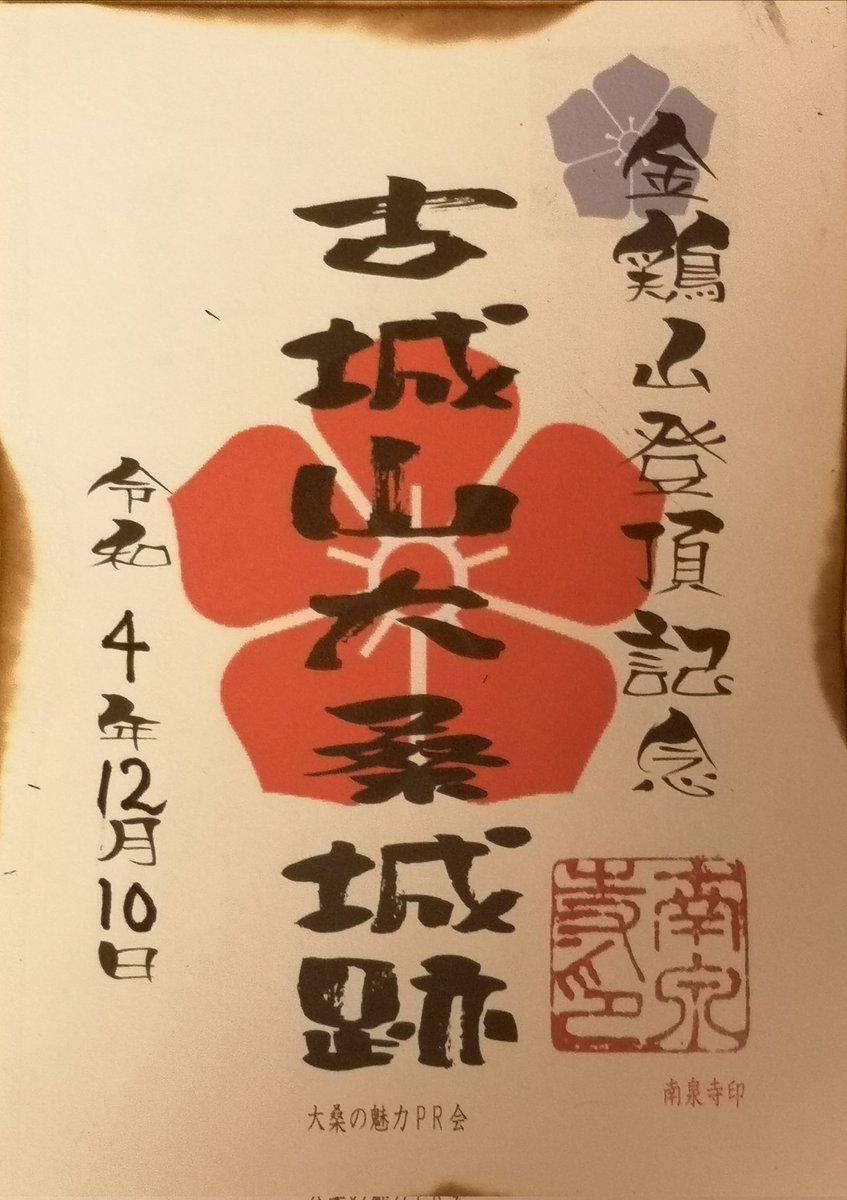 金鶏山登頂記念
古城山大桑城跡
令和4年12月10日
南泉寺印
南泉寺印
大桑の魅力PR会